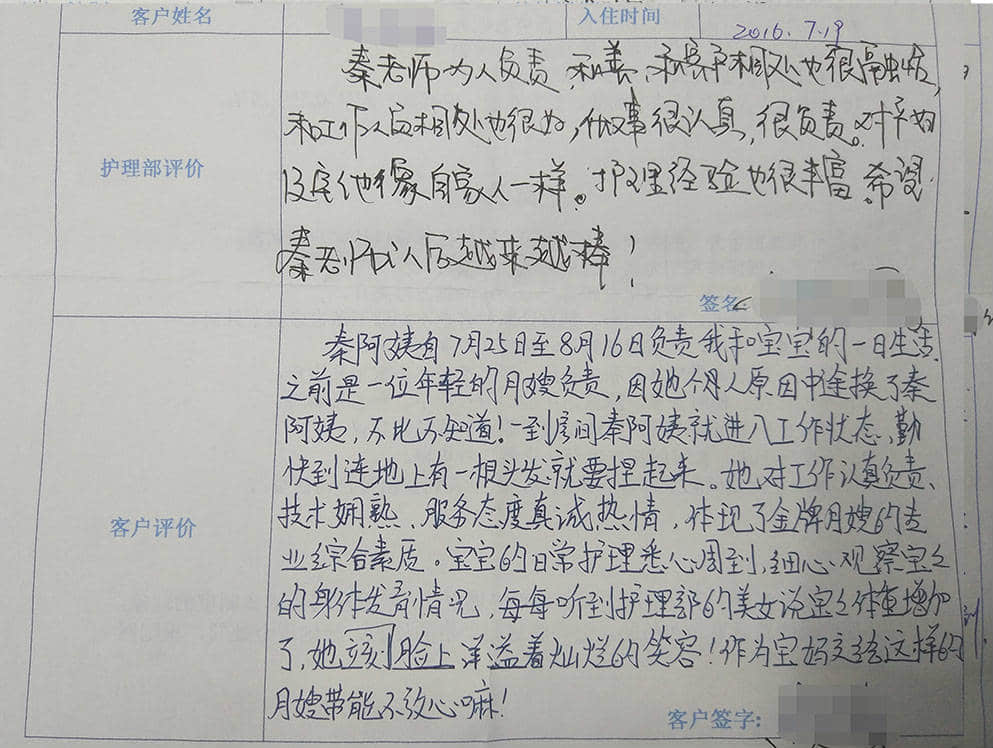 客户姓名 入住时间 2016.7.19
护理部评价
秦老师为人负责、和善、和客户相处也很融恰,
和工作人员相处也很好,做事很认真,很负责。对产妇
及宝他像自家人一样。护理经验也很丰富。希望
秦老师以后越来越棒!
签名
客户评价
秦阿姨自7月25日至8月16日负责我和宝宝的一日生活
之前是一位年轻的月嫂负责,因她个人原因中途换了秦
阿姨,不比不知道!一到房间秦阿姨就进入工作状态、勤
快到连地上有一根头发就要捏起来。她对工作认真负责、
技术娴熟、服务态度真诚热情,体现了金牌月嫂的专
业综合素质。宝宝的日常护理悉心周到,细心观察宝宝
的身体发育情况,每每听到护理部的美女说宝宝体重增加
了,她立刻脸上洋溢着灿烂的笑容!作为宝妈交给这样的
月嫂带能不放心嘛!
客户签字: